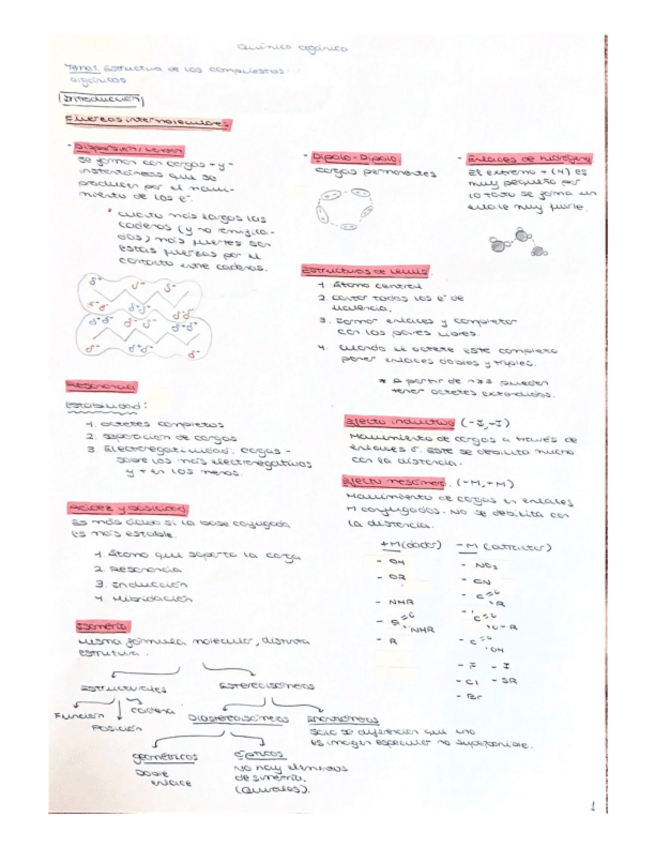 Química orgánica
Tema 1. Estructura de los compuestos
orgánicos
Introducción
Fuerzas intermoleculares
- Dispersión/London
Se forman con cargas + y -
instantáneas que se
producen por el movi-
miento de los e⁻.
* cuanto más largas las
cadenas (y no ramifica-
das) más fuertes son
estas fuerzas por el
contacto entre cadenas.
δ⁺ δ⁻ δ⁻
δ⁻ δ⁻ δ⁺ δ⁺ δ⁺ δ⁺
δ⁺ δ⁺ δ⁻ δ⁻ δ⁻
δ⁻ δ⁺ δ⁺ δ⁻
- Dipolo-Dipolo
cargas permanentes
- Enlaces de hidrógeno
El extremo + (H) es
muy pequeño por
lo tanto se forma un
enlace muy fuerte.
Estructuras de Lewis.
1. Átomo central
2. contar todos los e⁻ de
valencia.
3. Formar enlaces y completar
con los pares libres.
4. Cuando el octete esté completo
poner enlaces dobles y triples.
* A partir de n=3 pueden
tener octetes extendidos.
Resonancia
Estabilidad:
1. octetes completos
2. separación de cargas
3. Electronegatividad: cargas -
sobre los más electronegativos
y + en los menos.
Efecto inductivo (-I,+I)
Movimiento de cargas a través de
enlaces σ. Este se debilita mucho
con la distancia.
Efecto mesómero. (-M,+M)
Movimiento de cargas en enlaces
π conjugados. No se debilita con
la distancia.
+M (dador)
- OH
- OR
- NHR
- NHR
- R
-M (atractor)
- NO₂
- CN
- C=O R
- C=O O-R
- C=O OH
- F - I
- Cl - SR
- Br
Acidez y basicidad
Es más ácido si la base conjugada
es más estable.
1. Átomo que soporta la carga
2. Resonancia
3. Inducción
4. Hibridación
Isomería
Misma fórmula molecular, distinta
estructura.
Estructurales Estereoisómeros
Función Posición cadena
Diastereoisómeros Enantiómeros
Solo se diferencian que uno
es imagen especular no superponible.
geométricos ópticos
Doble
enlace
No hay elementos
de simetría.
(Quirales).
1